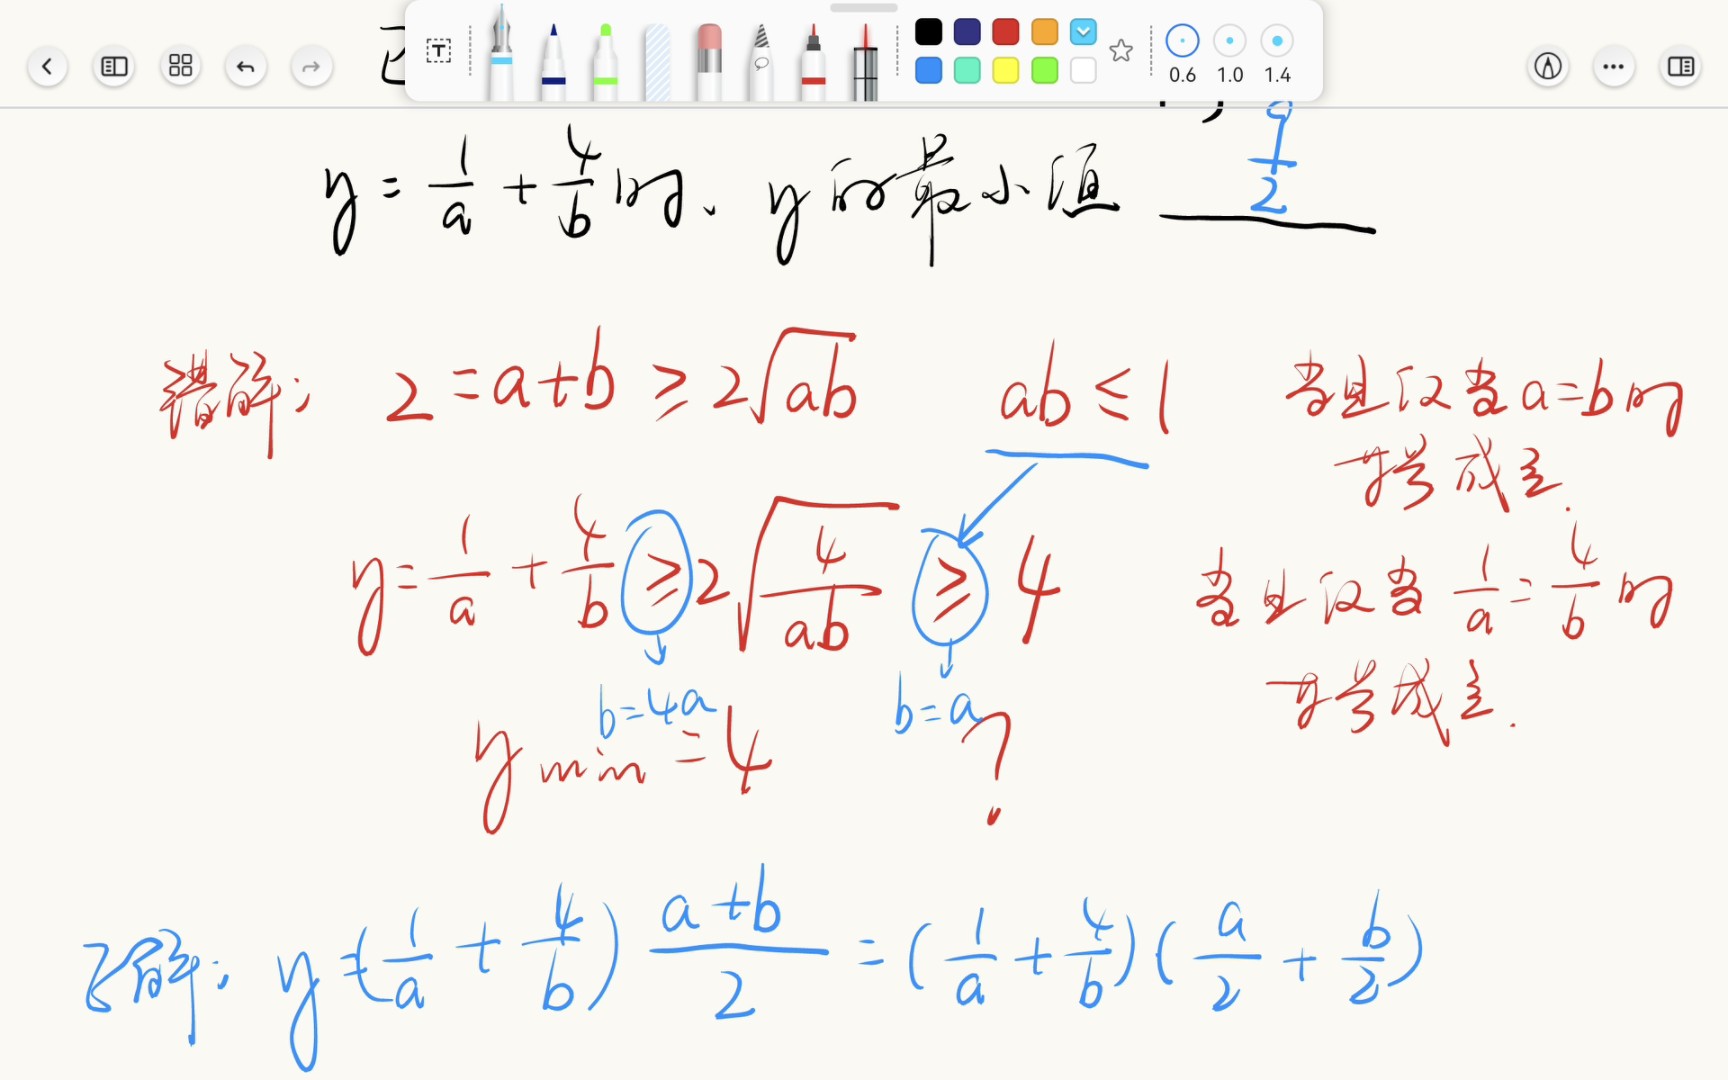 0.6 1.0 1.4
y = 1/a + 4/b 时、y 的最小值 9/2
错解: 2 = a+b ≥ 2√ab ab ≤ 1 当且仅当 a=b 时
等号成立.
y = 1/a + 4/b ≥ 2√(4/ab) ≥ 4 当且仅当 1/a = 4/b 时
等号成立.
b=4a b=a
y min = 4 ?
正解: y = (1/a + 4/b) (a+b)/2 = (1/a + 4/b)(a/2 + b/2)